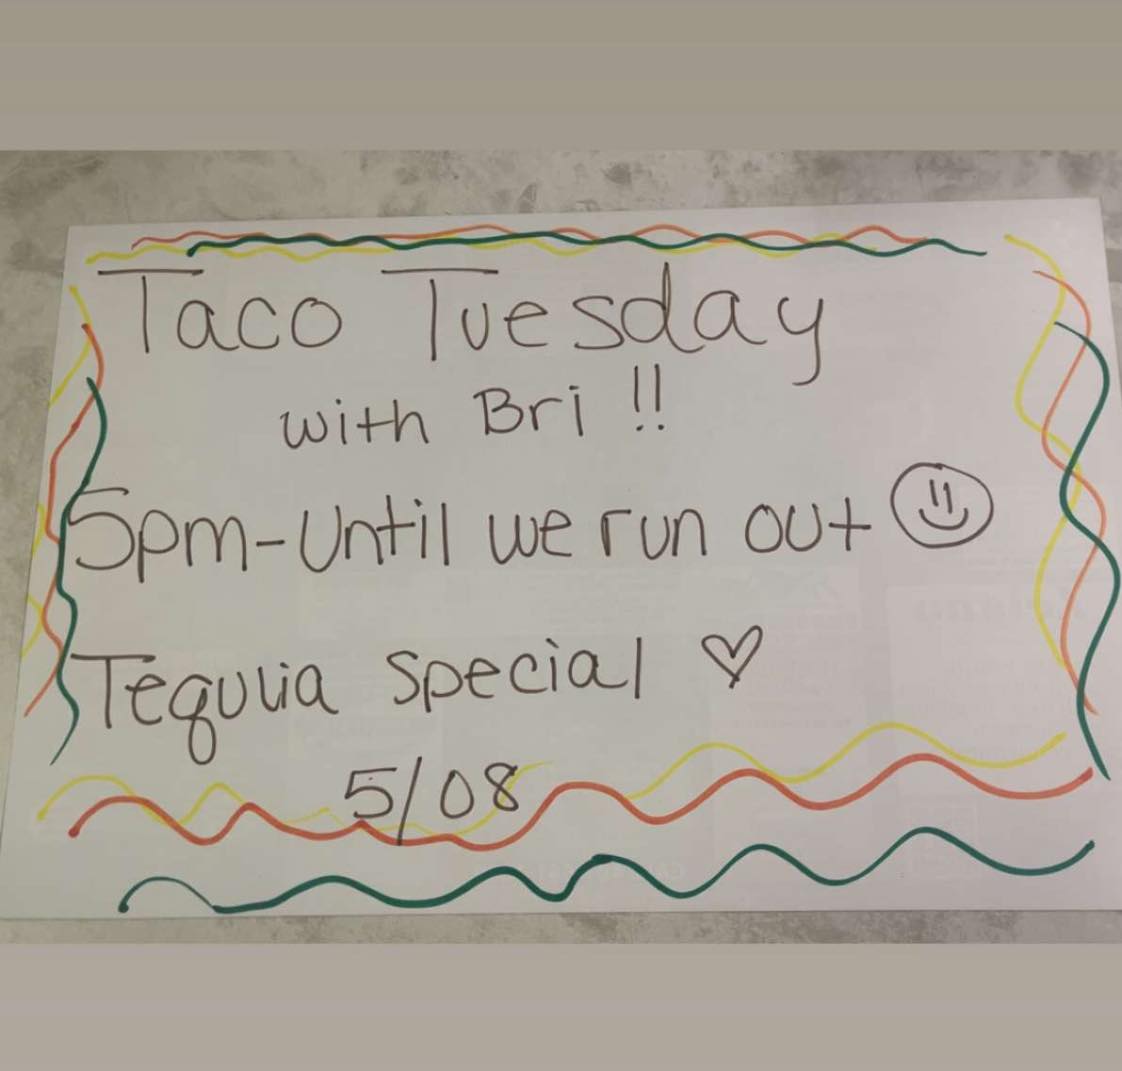 Taco Tuesday
with Bri !!
5pm-Until we run out
Tequlia special ♡
5/08